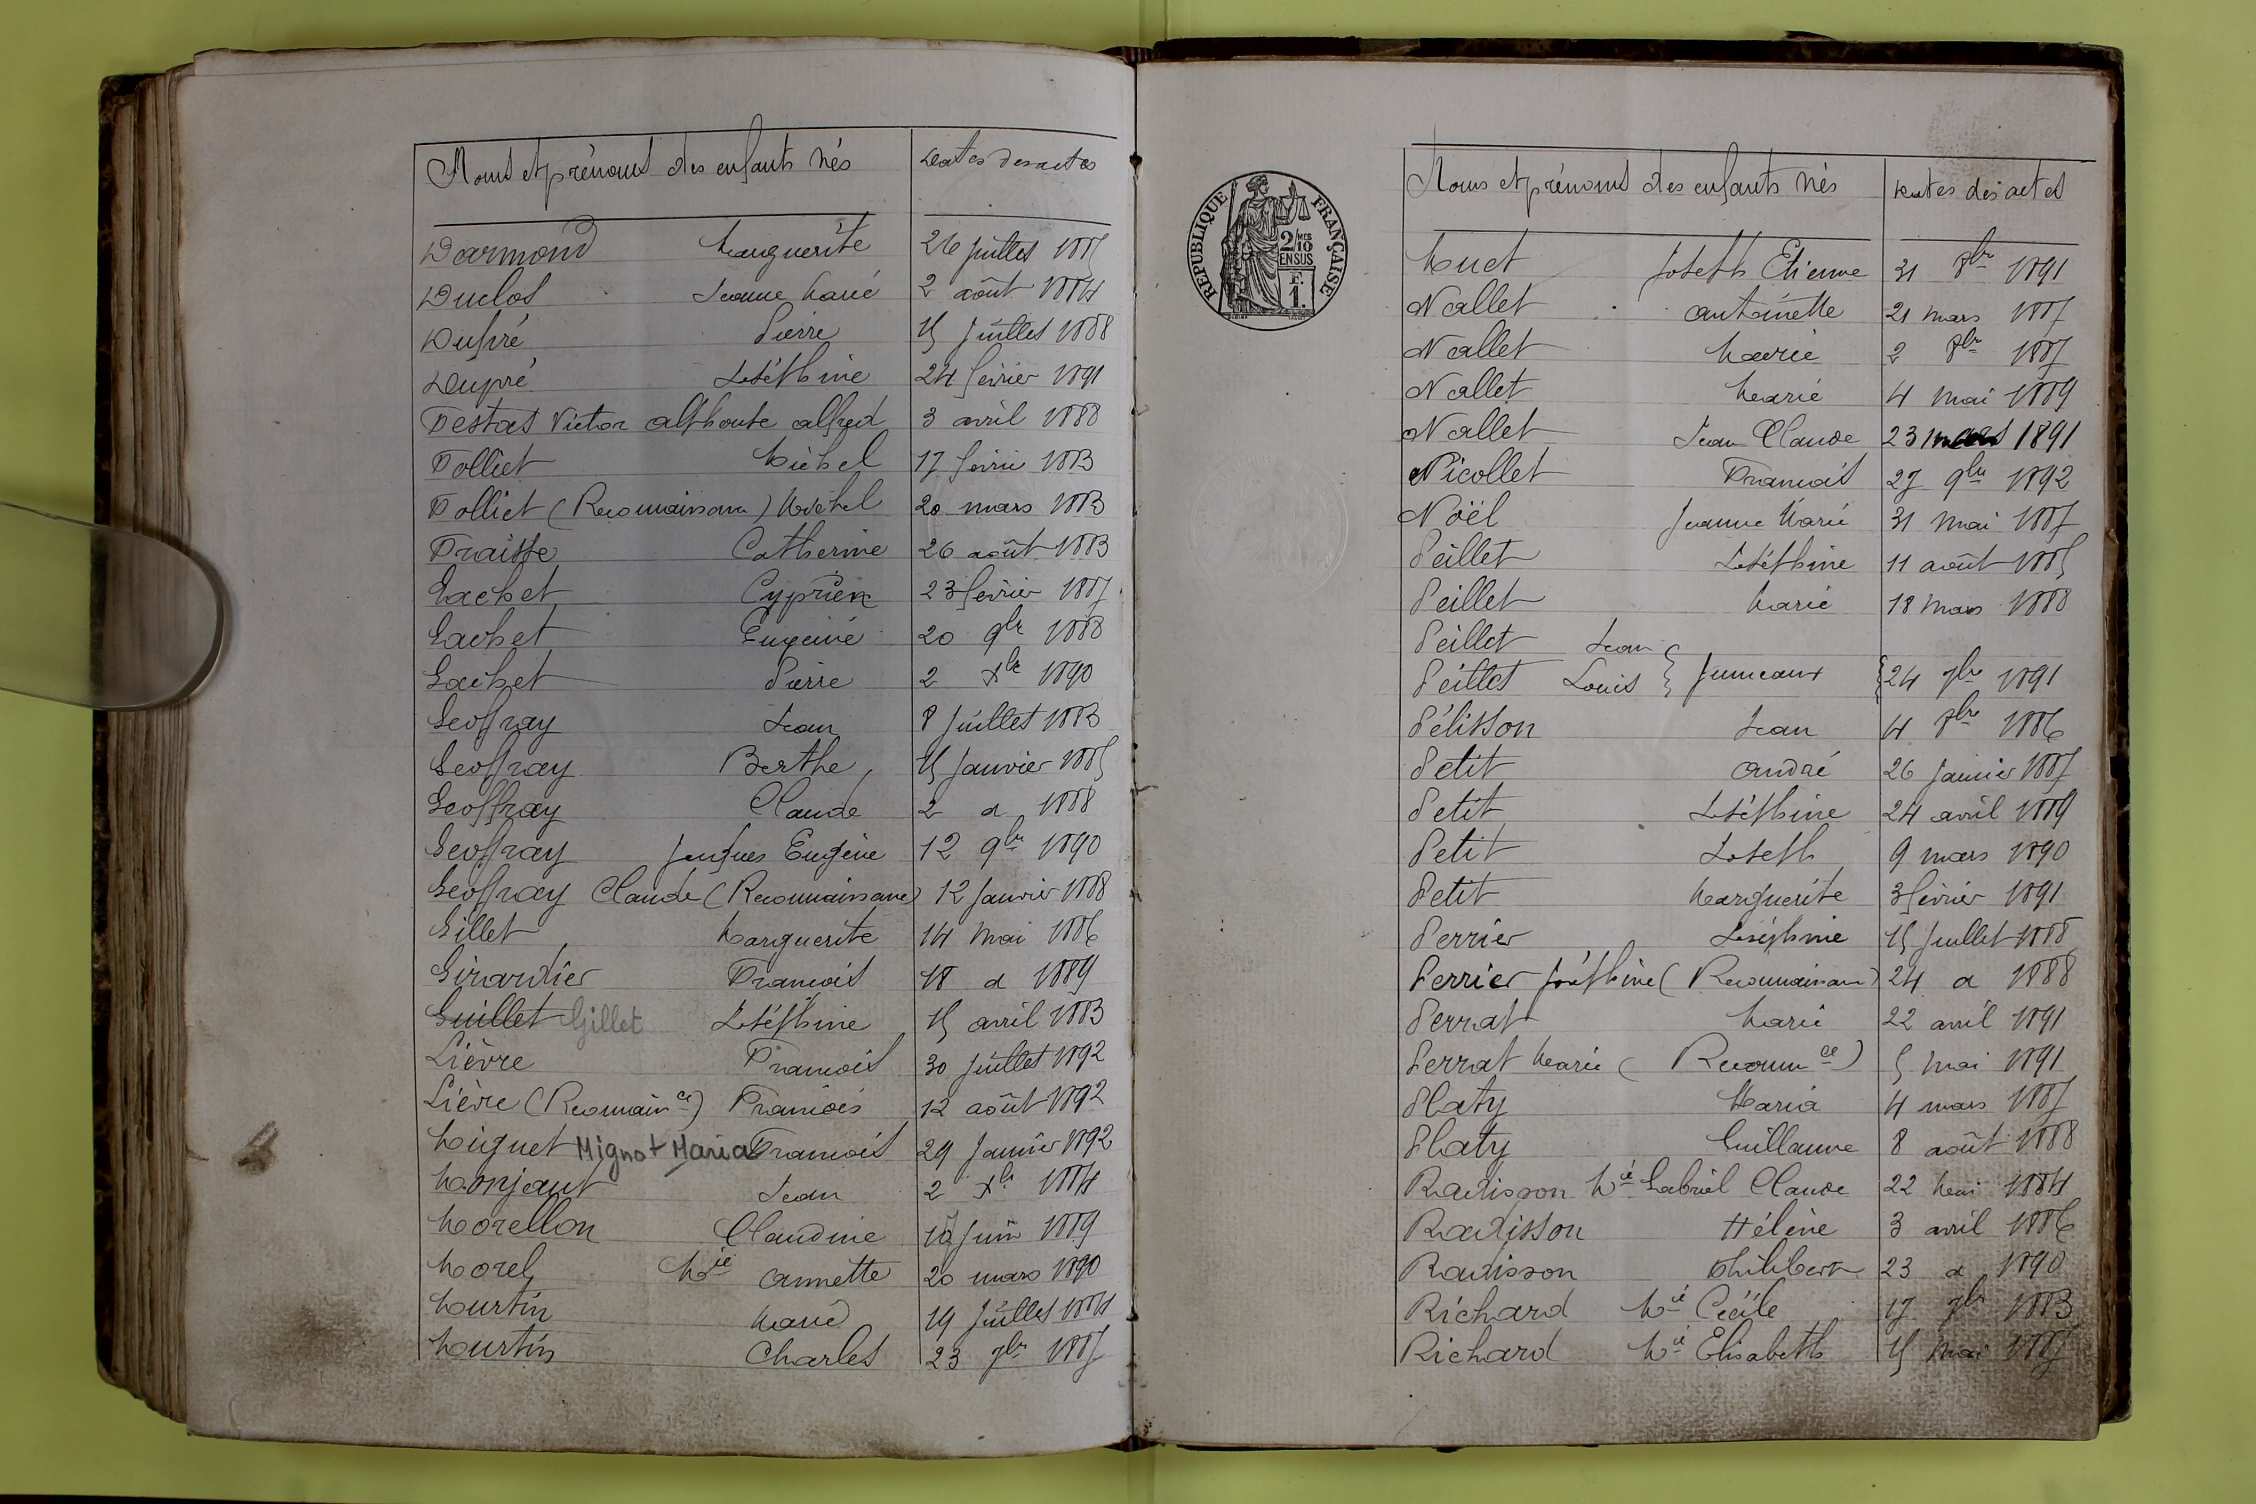 Noms et prénoms des enfants nés Dates des actes
Darmond Marguerite 26 juillet 1885
Duclos Jeanne Marie 2 août 1884
Dupré Pierre 15 Juillet 1888
Dupré Joséphine 24 février 1891
Festas Victor alphonse alfred 3 avril 1888
Folliet Michel 17 février 1883
Folliet (Reconnaissance) Michel 20 mars 1883
Fraisse Catherine 26 août 1883
Gachet Cyprien 23 février 1887
Gachet Eugénie 20 9bre 1888
Gachet Pierre 2 Xbre 1890
Geoffray Jean 8 Juillet 1883
Geoffray Berthe 15 Janvier 1885
Geoffray Claude 2 d 1888
Geoffray Jacques Eugène 12 9bre 1890
Geoffray Claude (Reconnaissance) 12 Janvier 1888
Gillet Marguerite 14 Mai 1886
Girardier François 18 d 1889
Guillet Gillet Joséphine 15 avril 1883
Lièvre François 30 Juillet 1892
Lièvre (Reconnaince) François 12 août 1892
Miguet Mignot Maria François 29 Janvier 1892
Monjaut Jean 2 Xbre 1884
Morellon Claudine Juin 1889
Morel Mie annette 20 mars 1890
Murtin Marie 19 Juillet 1884
Murtin Charles 23 7bre 1887
RÉPUBLIQUE FRANÇAISE
2/10 MES
EN SUS
F.
1.
Noms et prénoms des enfants nés Dates des actes
Muet Joseph Etienne 31 8bre 1891
Nallet antoinette 21 mars 1887
Nallet Marie 2 8bre 1887
Nallet Marie 4 Mai 1889
Nallet Jean Claude 23 mars 1891
Nicollet François 27 9bre 1892
Noël Jeanne Marie 31 Mai 1887
Peillet Joséphine 11 août 1885
Peillet Marie 18 Mars 1888
Peillet Jean
Peillet Louis } Jumeaux { 24 7bre 1891
Pélisson Jean 4 8bre 1886
Petit andré 26 Janvier 1887
Petit Joséphine 24 avril 1889
Petit Joseph 9 mars 1890
Petit Marguerite 3 février 1891
Perrier Joséphine 15 Juillet 1888
Perrier Joséphine (Reconnaissance) 24 d 1888
Perrat Marie 22 avril 1891
Perrat Marie (Reconnce) 5 Mai 1891
Platy Maria 4 mars 1887
Platy Guillaume 8 août 1888
Radisson Mie Gabriel Claude 22 Mai 1884
Radisson Hélène 3 avril 1886
Radisson Philibert 23 d 1890
Richard Mie Cécile 17 7bre 1883
Richard Mie Elisabeth 15 Mai 1887